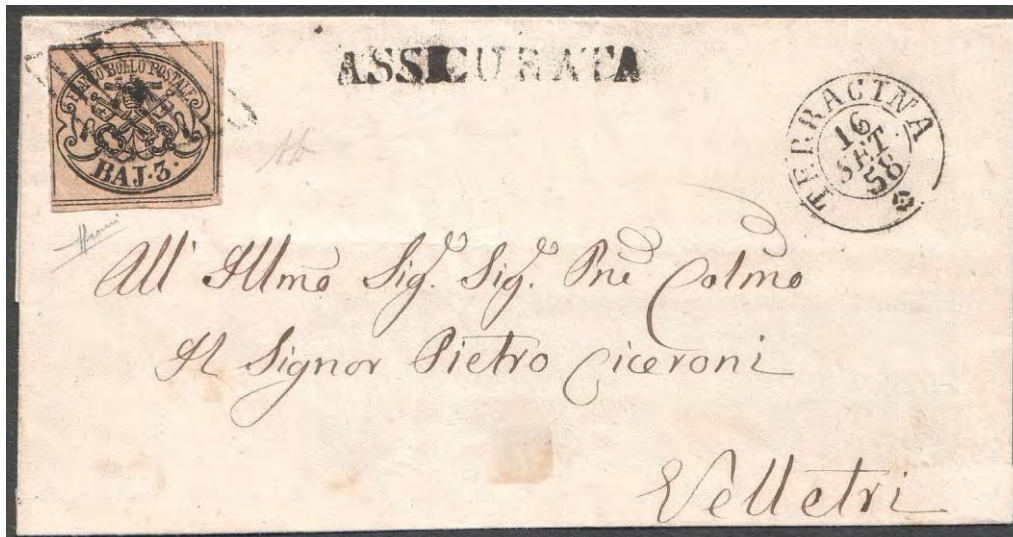 FRANCO BOLLO POSTALE
BAJ. 3.
ASSICURATA
TERRACINA
16
SET.
58
All' Illmo Sig. Sig. Pne Colmo
Il Signor Pietro Ciceroni
Velletri